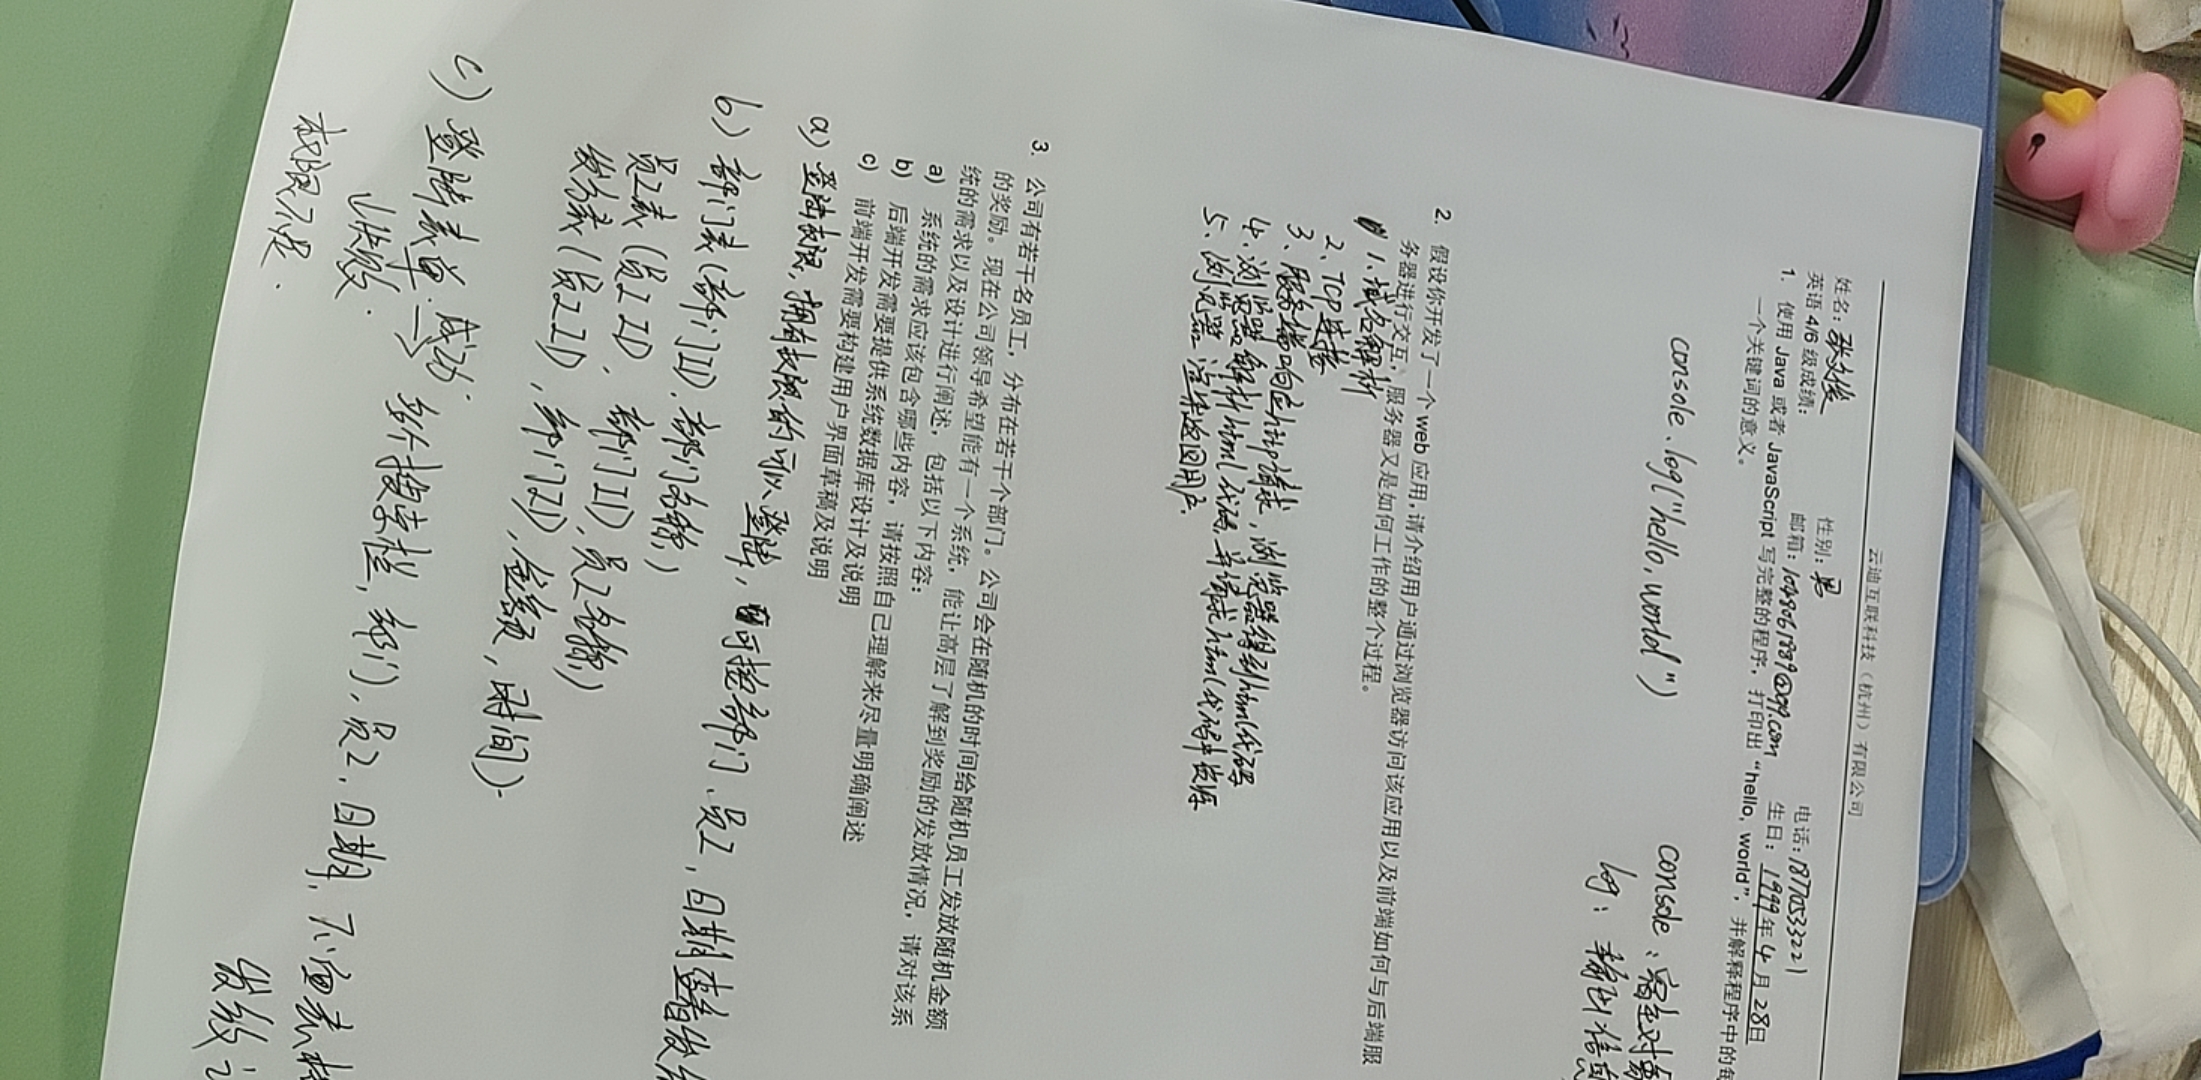 云迪互联科技（杭州）有限公司
姓名：张文俊 性别：男 电话：18770533221
英语 4/6 级成绩： 邮箱：1048061889@qq.com 生日：1999年4月28日
1. 使用 Java 或者 JavaScript 写完整的程序，打印出“hello, world”，并解释程序中的每
一个关键词的意义。
console.log("hello,world") console：宿主对象
log：输出信息
2. 假设你开发了一个 web 应用，请介绍用户通过浏览器访问该应用以及前端如何与后端服
务器进行交互，服务器又是如何工作的整个过程。
1、域名解析
2、TCP连接
3、服务端响应http请求，浏览器得到html代码
4、浏览器解析html代码，并请求html代码中资源
5、浏览器渲染返回用户.
3. 公司有若干名员工，分布在若干个部门。公司会在随机的时间给随机员工发放随机金额
的奖励。现在公司领导希望能有一个系统，能让高层了解到奖励的发放情况，请对该系
统的需求以及设计进行阐述，包括以下内容：
a) 系统的需求应该包含哪些内容，请按照自己理解来尽量明确阐述
b) 后端开发需要提供系统数据库设计及说明
c) 前端开发需要构建用户界面草稿及说明
a) 登陆权限，拥有权限的可以登陆，可按部门、员工，日期查看发
b) 部门表(部门ID，部门名称)
员工表(员工ID，部门ID，员工名称)
发放表(员工ID，部门ID，金额，时间).
c) 登陆表单 → 成功 多个搜索栏，部门，员工，日期，下面表格
↓失败. 发放
权限不足.